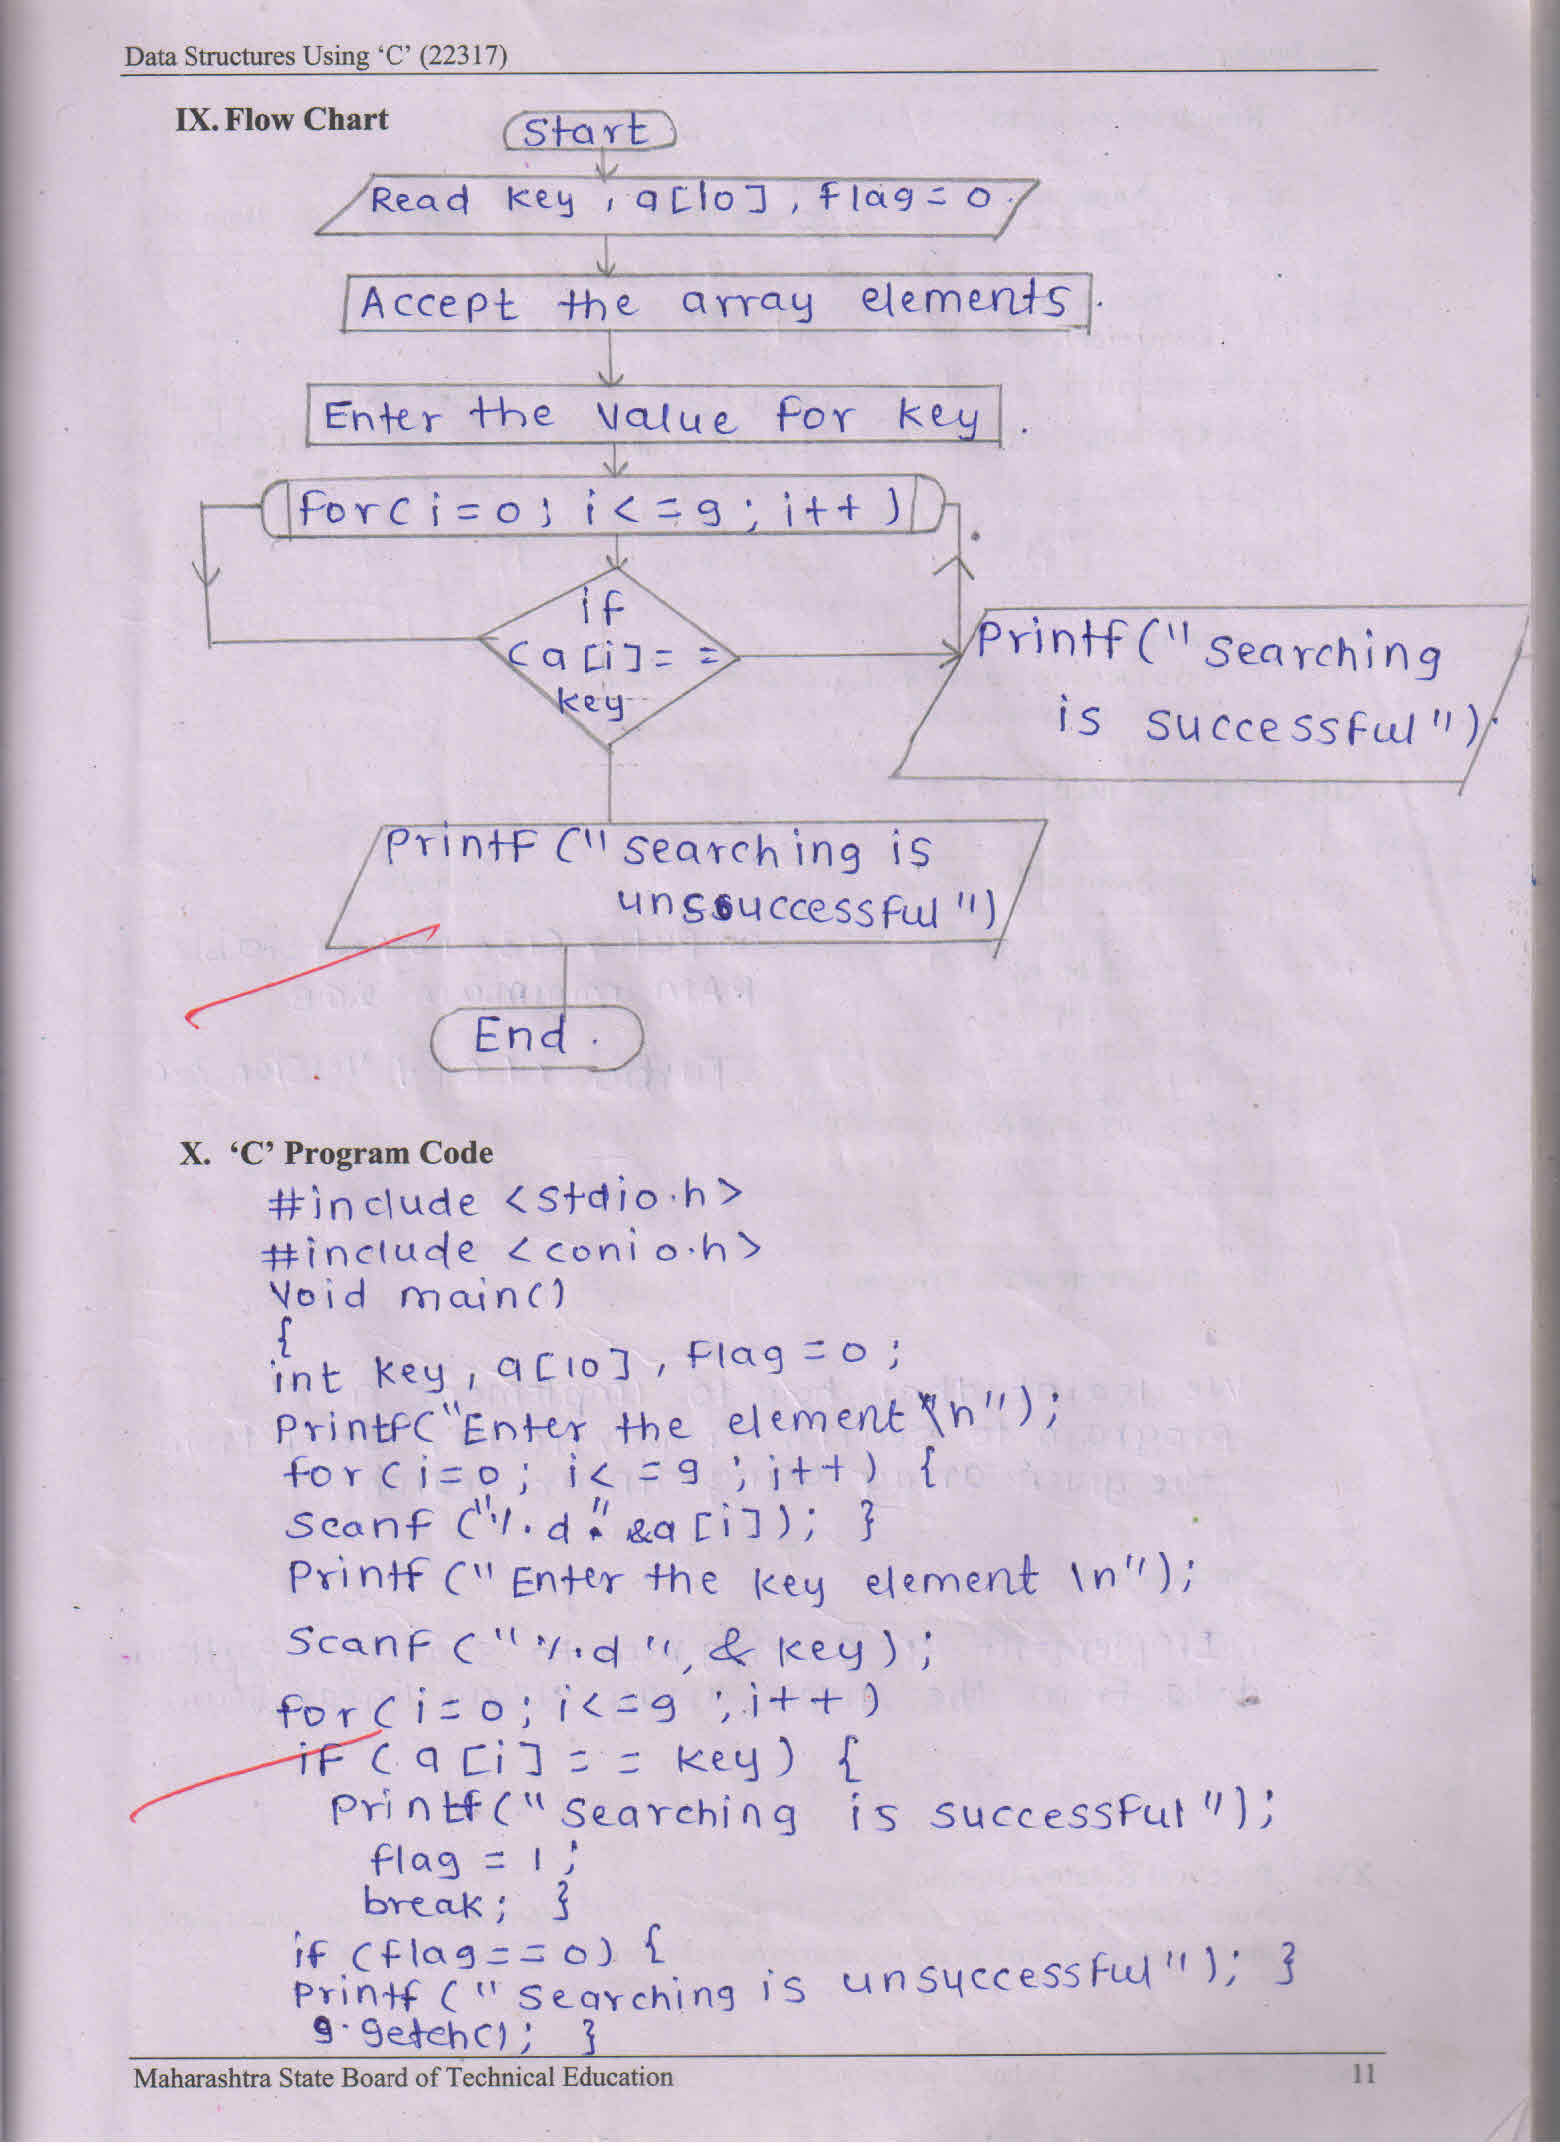 Data Structures Using ‘C’ (22317)
IX. Flow Chart
Start
Read key, a[10], flag = 0.
Accept the array elements.
Enter the value for key.
for(i=0; i<=9; i++)
if
(a[i]==
key
Printf("Searching
is successful").
Printf("searching is
unssuccessful")
End.
X. ‘C’ Program Code
#include <stdio.h>
#include <conio.h>
Void main()
{
int key, a[10], flag = 0;
Printf("Enter the element \n");
for(i=0; i<=9; i++) {
Scanf("%d" &a[i]); }
Printf("Enter the key element \n");
Scanf("%d", &key);
for(i=0; i<=9; i++)
if(a[i]== key) {
Printf("Searching is successful");
flag = 1;
break; }
if(flag==0) {
Printf("Searching is unsuccessful"); }
g.getch(); }
Maharashtra State Board of Technical Education 11